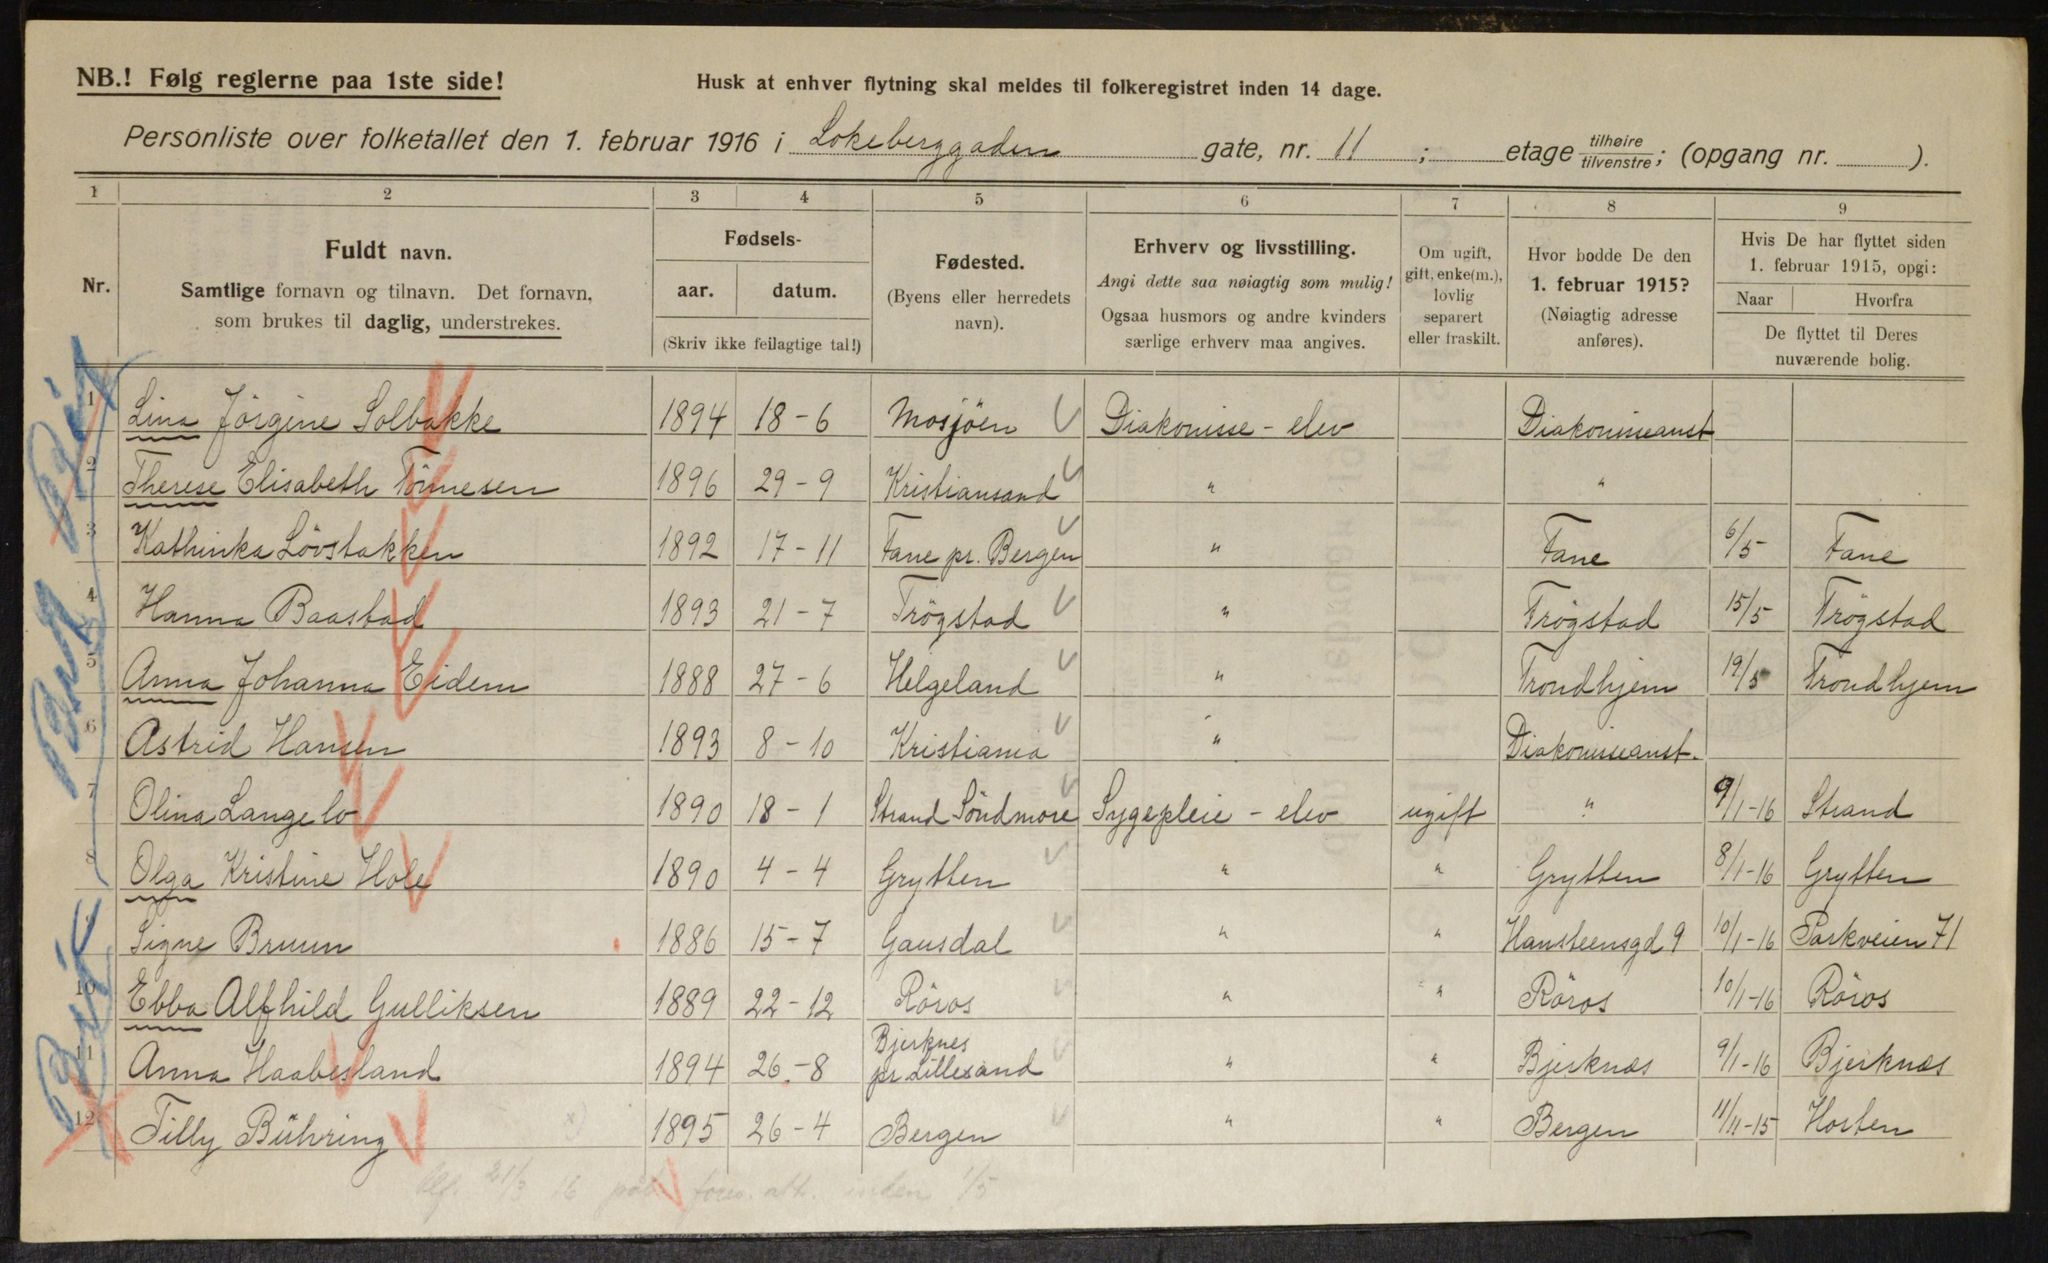 NB.! Følg reglerne paa 1ste side!
Husk at enhver flytning skal meldes til folkeregistret inden 14 dage.
Personliste over folketallet den 1. februar 1916 i Lokeberggaden gate, nr. 11 ; etage tilhøire/tilvenstre; (opgang nr. ).
1 2 3 4 5 6 7 8 9
Nr.
Fuldt navn.
Samtlige fornavn og tilnavn. Det fornavn,
som brukes til daglig, understrekes.
Fødsels-
aar. datum.
(Skriv ikke feilagtige tal!)
Fødested.
(Byens eller herredets
navn).
Erhverv og livsstilling.
Angi dette saa nøiagtig som mulig!
Ogsaa husmors og andre kvinders
særlige erhverv maa angives.
Om ugift,
gift, enke(m.),
lovlig
separert
eller fraskilt.
Hvor bodde De den
1. februar 1915?
(Nøiagtig adresse
anføres).
Hvis De har flyttet siden
1. februar 1915, opgi:
Naar Hvorfra
De flyttet til Deres
nuværende bolig.
1 Lina Jörgine Solbakke 1894 18-6 Mosjöen Diakonisse-elev Diakonisseanst
2 Therese Elisabeth Tönnesen 1896 29-9 Kristiansand " "
3 Kathinka Lövstakken 1892 17-11 Fane pr. Bergen " Fane 6/5 Fane
4 Hanna Baastad 1893 21-7 Trögstad " Trögstad 15/5 Trögstad
5 Anna Johanna Eidem 1888 27-6 Helgeland " Trondhjem 19/5 Trondhjem
6 Astrid Hansen 1893 8-10 Kristiania " Diakonisseanst.
7 Olina Langelo 1890 18-1 Strand Söndmöre Sygepleie-elev ugift " 9/1-16 Strand
8 Olga Kristine Hole 1890 4-4 Grytten " " Grytten 8/1-16 Grytten
9 Signe Bruun 1886 15-7 Gausdal " " Hansteensgd 9 10/1-16 Parkveien 71
10 Ebba Alfhild Gulliksen 1889 22-12 Röros " " Röros 10/1-16 Röros
11 Anna Haabesland 1894 26.-8 Bjerknes pr. Lillesand " " Bjerknæs 9/1-16 Bjerknæs
12 Tilly Bühring 1895 26-4 Bergen " " Bergen 11/11-15 Horten
21/3 16 inden 1/5